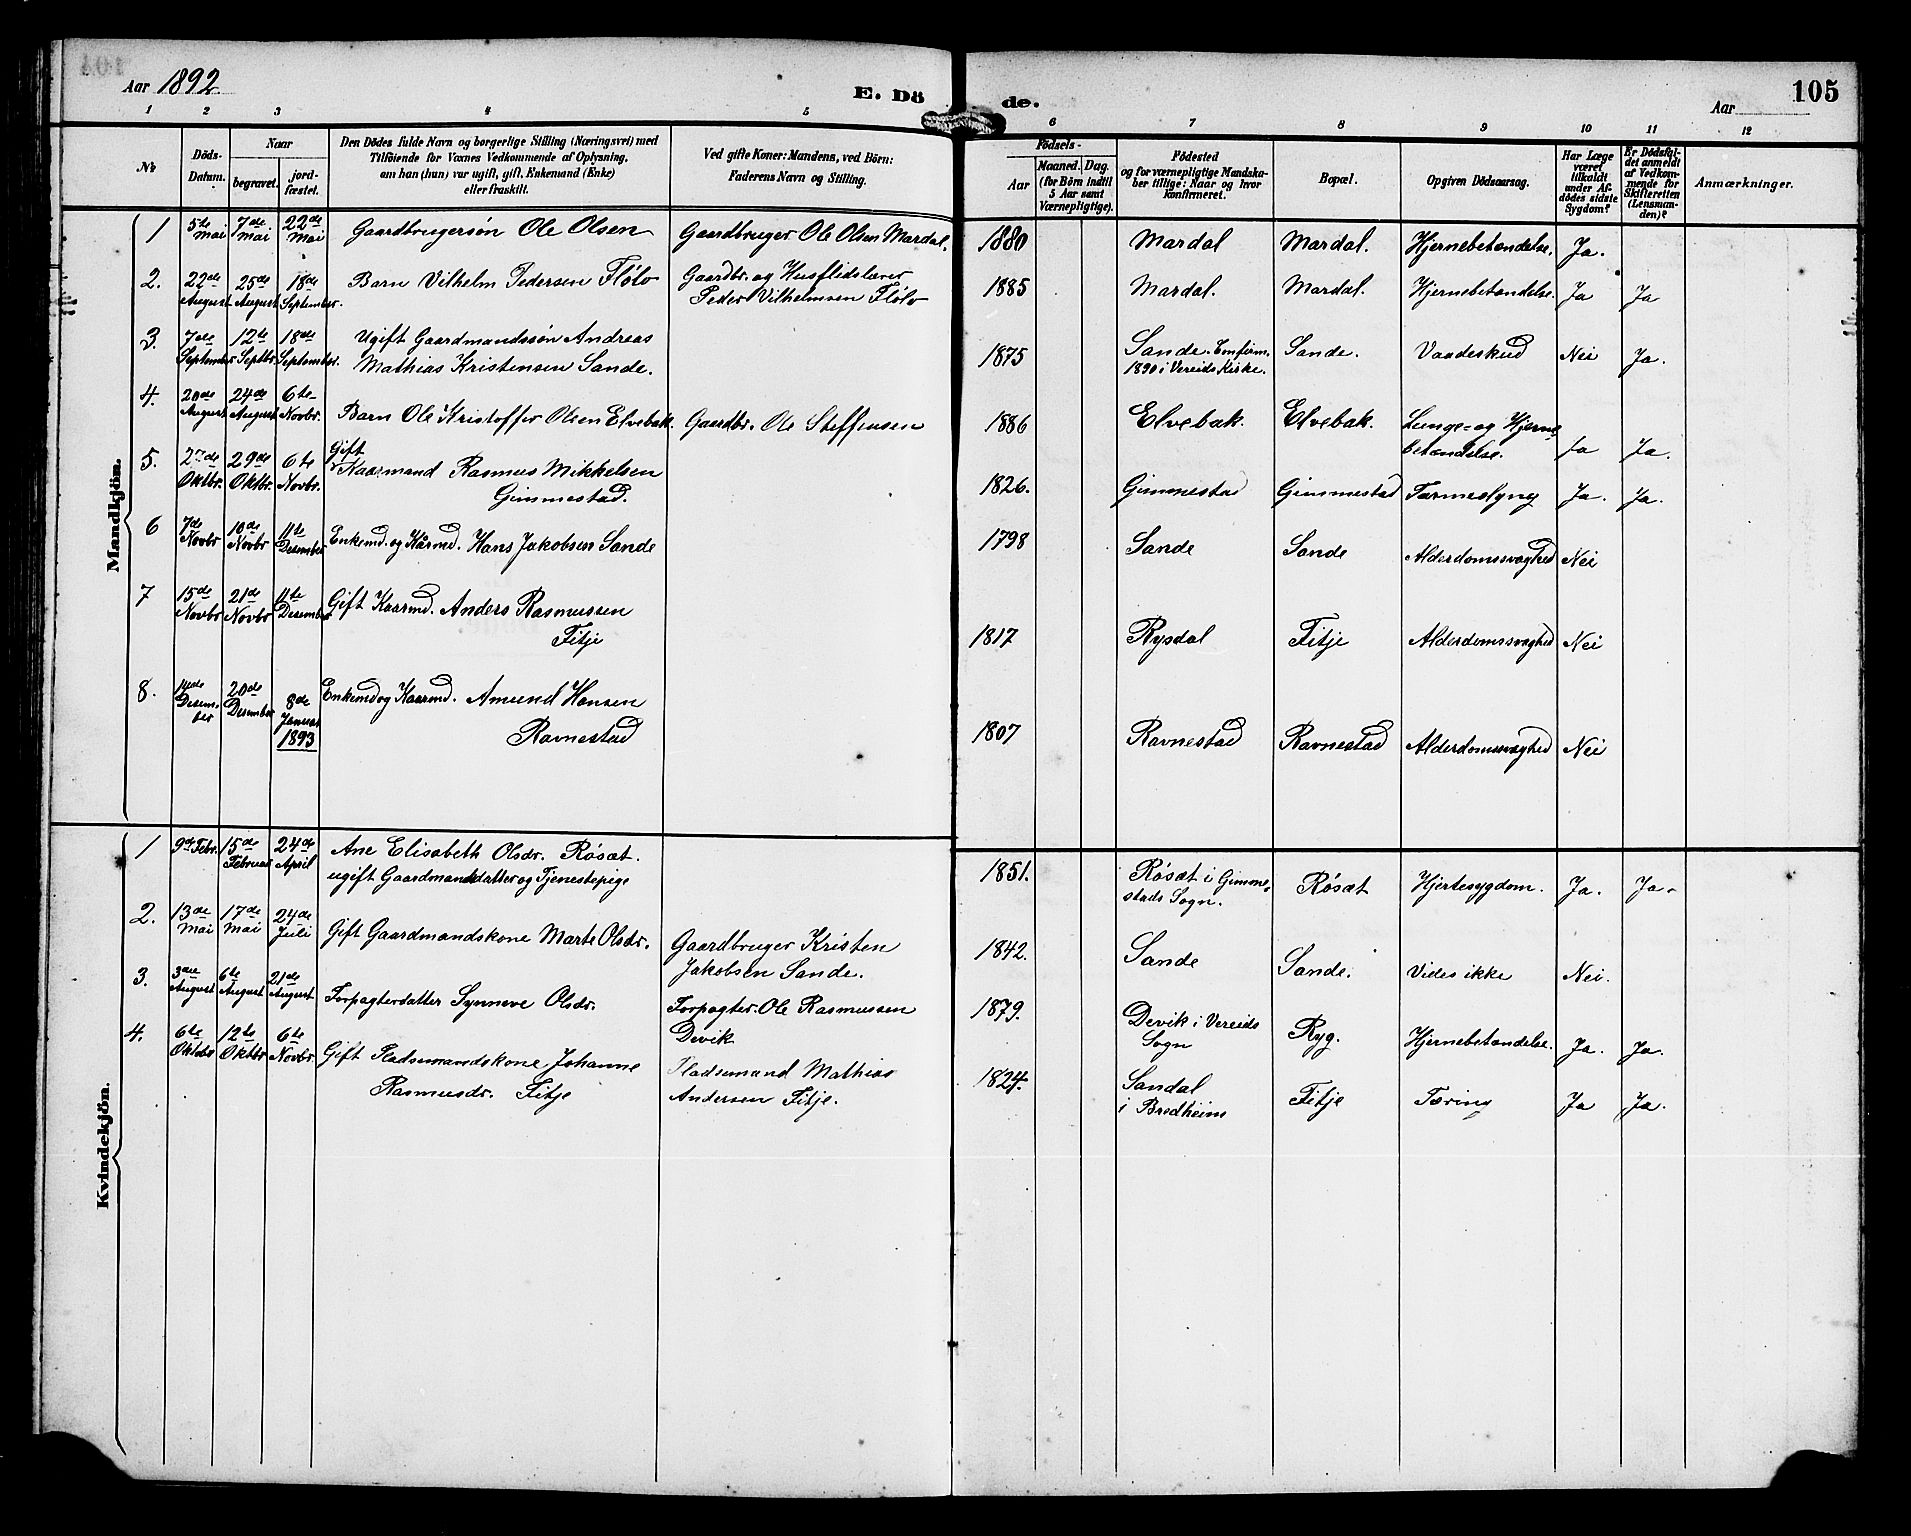 Aar 1892.
E. Dö
de.
Aar
105
1 2 3 4 5
6 7 8 9 10 11 12
№
Döds-
Datum.
Naar
begravet.
jord-
fæstet.
Den Dödes fulde Navn og borgerlige Stilling (Næringsvei) med
Tilföiende for Voxnes Vedkommende af Oplysning,
om han (hun) var ugift, gift, Enkemand (Enke)
eller fraskilt.
Ved gifte Koner: Mandens, ved Börn:
Faderens Navn og Stilling.
Födsels-
Aar
Maaned. Dag.
(for Börn indtil
5 Aar samt
Værnepligtige).
Födested
og for værnepligtige Mandska-
ber tillige: Naar og hvor
konfirmeret.
Bopæl.
Opgiven Dödsaarsag.
Har Læge
været
tilkaldt
under Af-
dödes sidste
Sygdom?
Er Dödsfal-
det anmeldt
af Vedkom-
mende for
Skifteretten
(Lensman-
den)?
Anmærkninger.
Mandkjön.
1 5te Mai 7de Mai 22de Mai Gaardbrugersøn Ole Olsen Gaardbruger Ole Olsen Mardal. 1880 Mardal Mardal. Hjernebetændelse. Ja.
2. 22de August 25de August 18de September. Barn Vilhelm Pedersen Fløto Gaardbr. og Husflidslærer
Peder Vilhelmsen Fløto 1885 Mardal. Mardal. Hjernebetændelse. Ja Ja
3. 7de September 12te Septbr. 18de September. Ugift Gaardmandssøn Andreas
Mathias Kristensen Sande. 1875 Sande. Confirm.
1890 i Vereids Kirke. Sande. Vaadeskud Nei Ja.
4. 20de August 24de August 6te Novbr. Barn Ole Kristoffer Olsen Elvebak. Gaardbr. Ole Steffensen 1886 Elvebak. Elvebak. Lunge- og Hjerne-
betændelse. Ja Ja.
5. 27de Oktbr. 29de Oktbr. 6te Novbr. Gift
Kaarmand Rasmus Mikkelsen
Gimmestad. 1826. Gimmestad Gimmestad Tarmeslyng Ja. Ja.
6 7de Novbr 10de Novbr 11te Desember Enkemd. og Kårmd. Hans Jakobsen Sande 1798 Sande Sande Alderdomssvaghed Nei
7 15de Novbr 21de Novbr 11te Desember Gift Kaarmd. Anders Rasmussen
Fitje 1817 Rysdal Fitje Alderdomssvaghed Nei
8. 14de Desem-
ber 20de Desember 8de Januar
1893 Enkemd og Kaarmd. Amund Hansen
Ravnestad 1807 Ravnestad Ravnestad Alderdomssvaghed Nei
Kvindekjön.
1 9de Febr. 15de Februar 24de April Ane Elisabeth Olsdr. Røsæt.
ugift Gaardmandsdatter og Tjenestepige 1851. Røsæt i Gimme-
stads Sogn. Røsæt Hjertesygdom. Ja. Ja.
2. 13de Mai 17de Mai 24de Juli Gift Gaardmandskone Marte Olsdr. Gaardbruger Kristen
Jakobsen Sande. 1842. Sande Sande. Vides ikke Nei.
3. 3die August 6te August 21de August Forpagterdatter Synneve Olsdr. Forpagter. Ole Rasmussen
Devik 1879. Devik i Vereids
Sogn Ryg. Hjernebetændelse. Ja. Ja.
4. 6te Oktober 12te Oktbr 6te Novbr Gift Pladsemandskone Johanne
Rasmusdr. Fitje Pladsemand Mathias
Andersen Fitje. 1824. Sandal
i Bredheim Fitje Tæring Ja Ja.